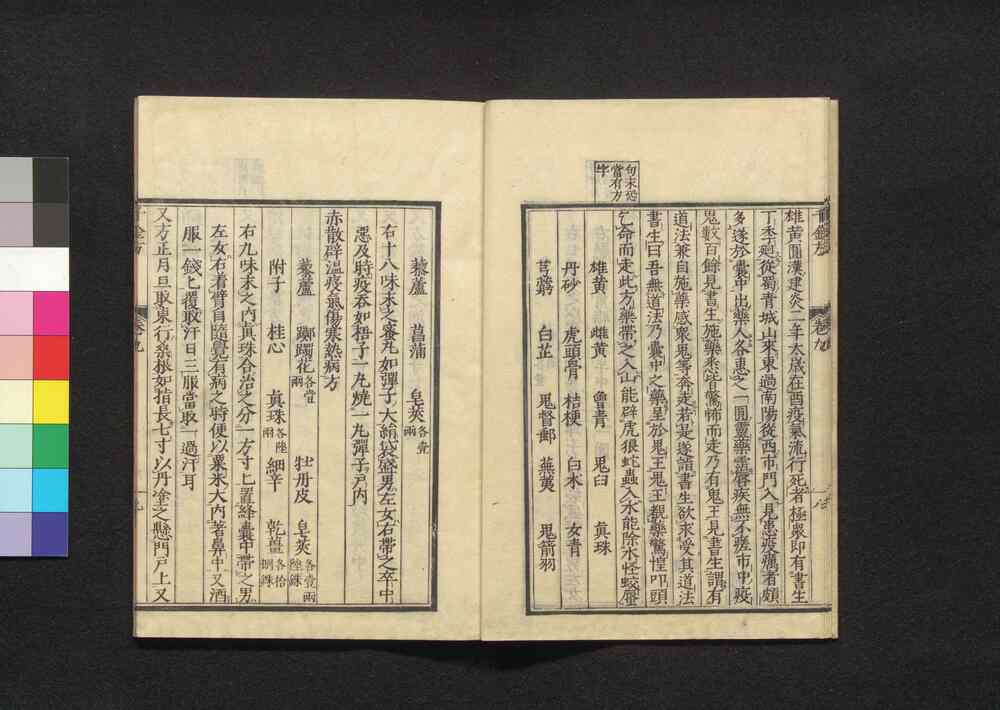 句末恐
當有方
字
雄黄圓漢建炎二年太歳在酉疫氣流行死者極衆即有書生
丁季廻從蜀青城山來東過南陽從西市門入見患疫癘者頗
多遂於囊中出藥人各惠之一圓靈藥霑脣疾無不瘥市中疫
鬼數百餘見書生施藥悉皆驚怖而走乃有鬼王見書生謂有
道法兼自施藥感衆鬼等奔走若是遂詣書生欲求受其道法
書生曰吾無道法乃囊中之藥呈於鬼王鬼王覩藥驚惶叩頭
乞命而走此方藥帶之入山能辟虎狼蛇蟲入水能除水怪蛟蜃
雄黄 雌黄 曾青 鬼臼 真珠
丹砂 虎頭骨 桔梗 白术 女青
芎藭 白芷 鬼督郵 蕪荑 鬼箭羽
藜蘆 菖蒲 皂莢各壹兩
右十八味末之蜜丸如彈子大絹袋盛男左女右帶之卒中
惡及時疫吞如梧子一丸燒一丸彈子戸内
赤散辟温疫氣傷寒熱病方
藜蘆 躑躅花各壹兩 牡丹皮 皂莢各壹兩陸銖
附子 桂心 真珠各陸兩 細辛 乾薑各拾捌銖
右九味末之内真珠合治之分一方寸匕置絳囊中帶之男
左女右着臂自隨覺有病之時便以粟米大内著鼻中又酒
服一錢匕覆取汗日三服當取一過汗耳
又方正月旦取東行桑根如指長七寸以丹塗之懸門戸上又
千金方
卷九